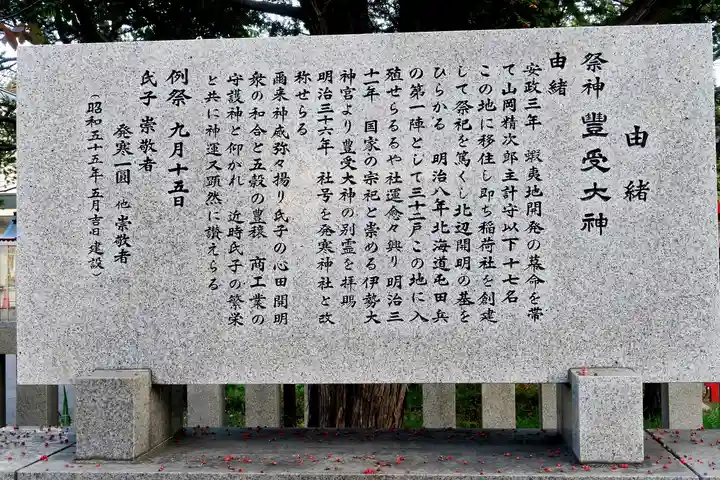 由緒
祭神 豊受大神
由緒
安政三年 蝦夷地開発の幕命を帯
て山岡精次郎主計守以下十七名
この地に移住し即ち稲荷社を創建
して祭祀を篤くし北辺開明の基を
ひらかる 明治八年北海道屯田兵
の第一陣として三十二戸この地に入
殖せらるるや社運愈々興り明治三
十一年 国家の宗祀と崇める伊勢大
神宮より豊受大神の別霊を拝賜
明治三十六年 社号を発寒神社と改
称せらる
爾来神威弥々揚り氏子の心田開明
衆の和合と五穀の豊穣 商工業の
守護神と仰がれ 近時氏子の繁栄
と共に神運又顕然に讃えらる
例祭 九月十五日
氏子 崇敬者
発寒一圓 他崇敬者
(昭和五十五年五月吉日建設)